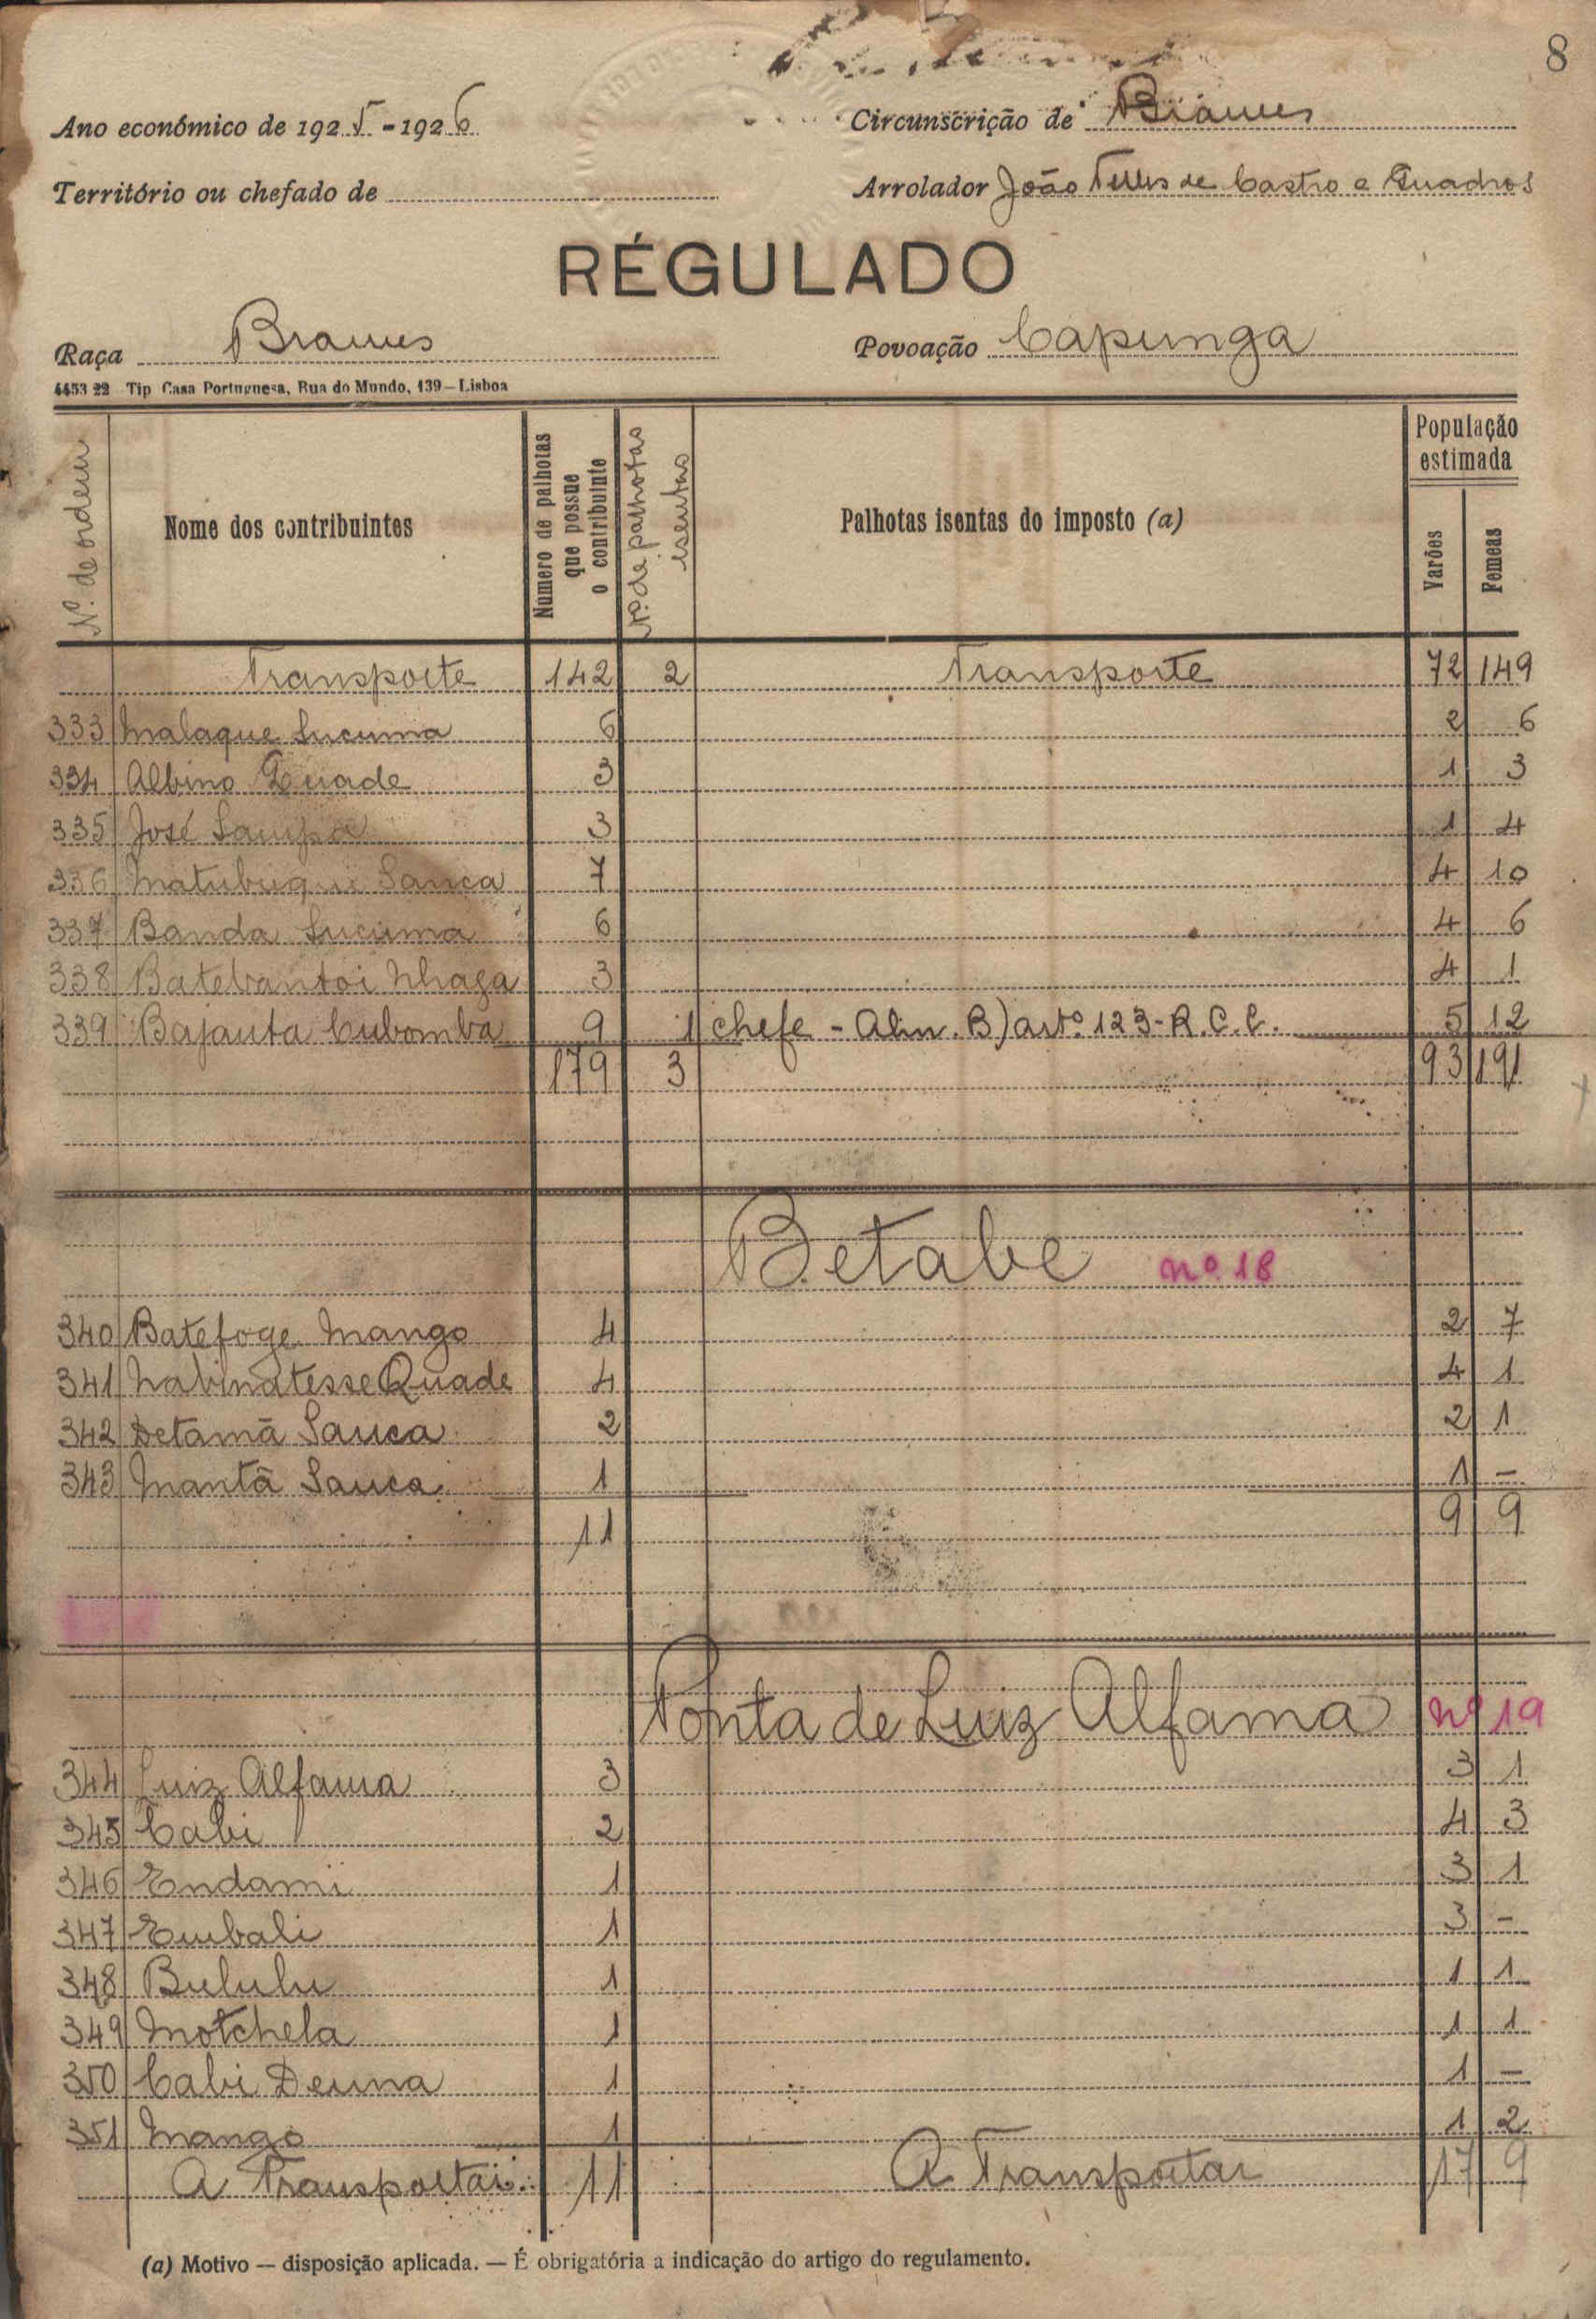 8
Ano económico de 1925-1926 Circunscrição de Brames
Território ou chefado de Arrolador João Telles de Castro e Quadros
RÉGULADO
Raça Brames Povoação Capunga
4453 22 Tip Casa Portuguesa, Rua do Mundo, 139—Lisboa
Nº de ordem Nome dos contribuintes Número de palhotas que possue o contribuinte Nº de palhotas isentas Palhotas isentas do imposto (a) População estimada Varões Femeas
Transporte 142 2 Transporte 72 149
333 Malaque Sucuma 6 2 6
334 Albino Quade 3 1 3
335 José Sampa 3 1 4
336 Sanca 7 4 10
337 Banda Sucuma 6 4 6
338 Batebantoi Nhaga 3 4 1
339 Bajauta Cubomba 9 1 chefe - Alin. B) artº 123-R.C.C. 5 12
179 3 93 191
Betabe nº 18
340 Batefoge Mango 4 2 7
341 Nabinatesse Quade 4 4 1
342 Detamã Sanca 2 2 1
343 Mantã Sanca 1 1 -
11 9 9
Ponta de Luiz Alfama nº 19
344 Luiz Alfama 3 3 1
345 Cabi 2 4 3
346 Endami 1 3 1
347 Embali 1 3 -
348 Bululu 1 1 1
349 Motchela 1 1 1
350 Cabi Deuna 1 1 -
351 Mango 1 1 2
A Transportar 11 A Transportar 17 9
(a) Motivo — disposição aplicada. — É obrigatória a indicação do artigo do regulamento.